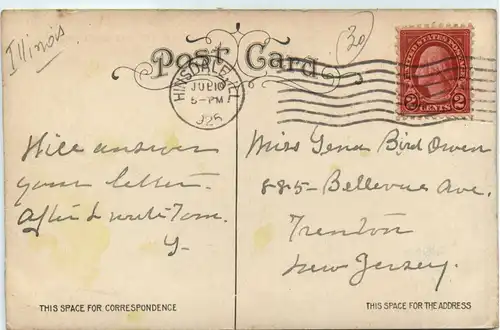 Illinois
20
Post Card
UNITED STATES POSTAGE
2 CENTS 2
HINSDALE, ILL.
JUL 10
5-PM
1926
Will answer
your letter
after I write Tom.
Y-
Miss Lena Bird Owen
885- Bellevue Ave.
Trenton
New Jersey.
THIS SPACE FOR CORRESPONDENCE
THIS SPACE FOR THE ADDRESS